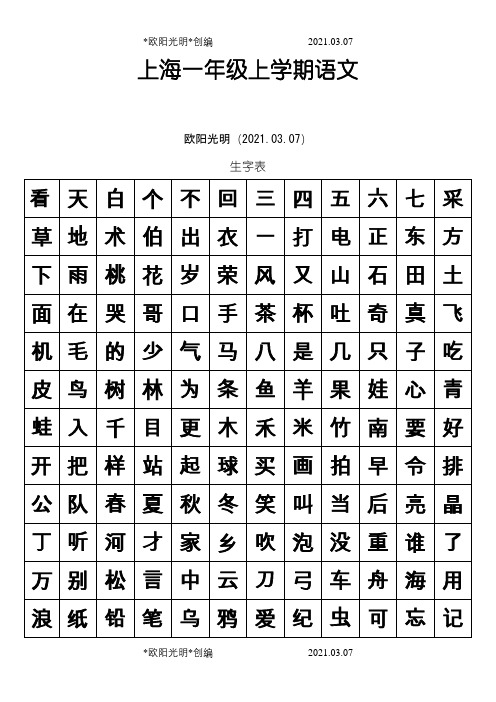 *欧阳光明*创编 2021.03.07
上海一年级上学期语文
欧阳光明（2021.03.07）
生字表
看 天 白 个 不 回 三 四 五 六 七 采
草 地 术 伯 出 衣 一 打 电 正 东 方
下 雨 桃 花 岁 荣 风 又 山 石 田 土
面 在 哭 哥 口 手 茶 杯 吐 奇 真 飞
机 毛 的 少 气 马 八 是 几 只 子 吃
皮 鸟 树 林 为 条 鱼 羊 果 娃 心 青
蛙 入 千 目 更 木 禾 米 竹 南 要 好
开 把 样 站 起 球 买 画 拍 早 令 排
公 队 春 夏 秋 冬 笑 叫 当 后 亮 晶
丁 听 河 才 家 乡 吹 泡 没 重 谁 了
万 别 松 言 中 云 刀 弓 车 舟 海 用
浪 纸 铅 笔 乌 鸦 爱 纪 虫 可 忘 记
*欧阳光明*创编 2021.03.07